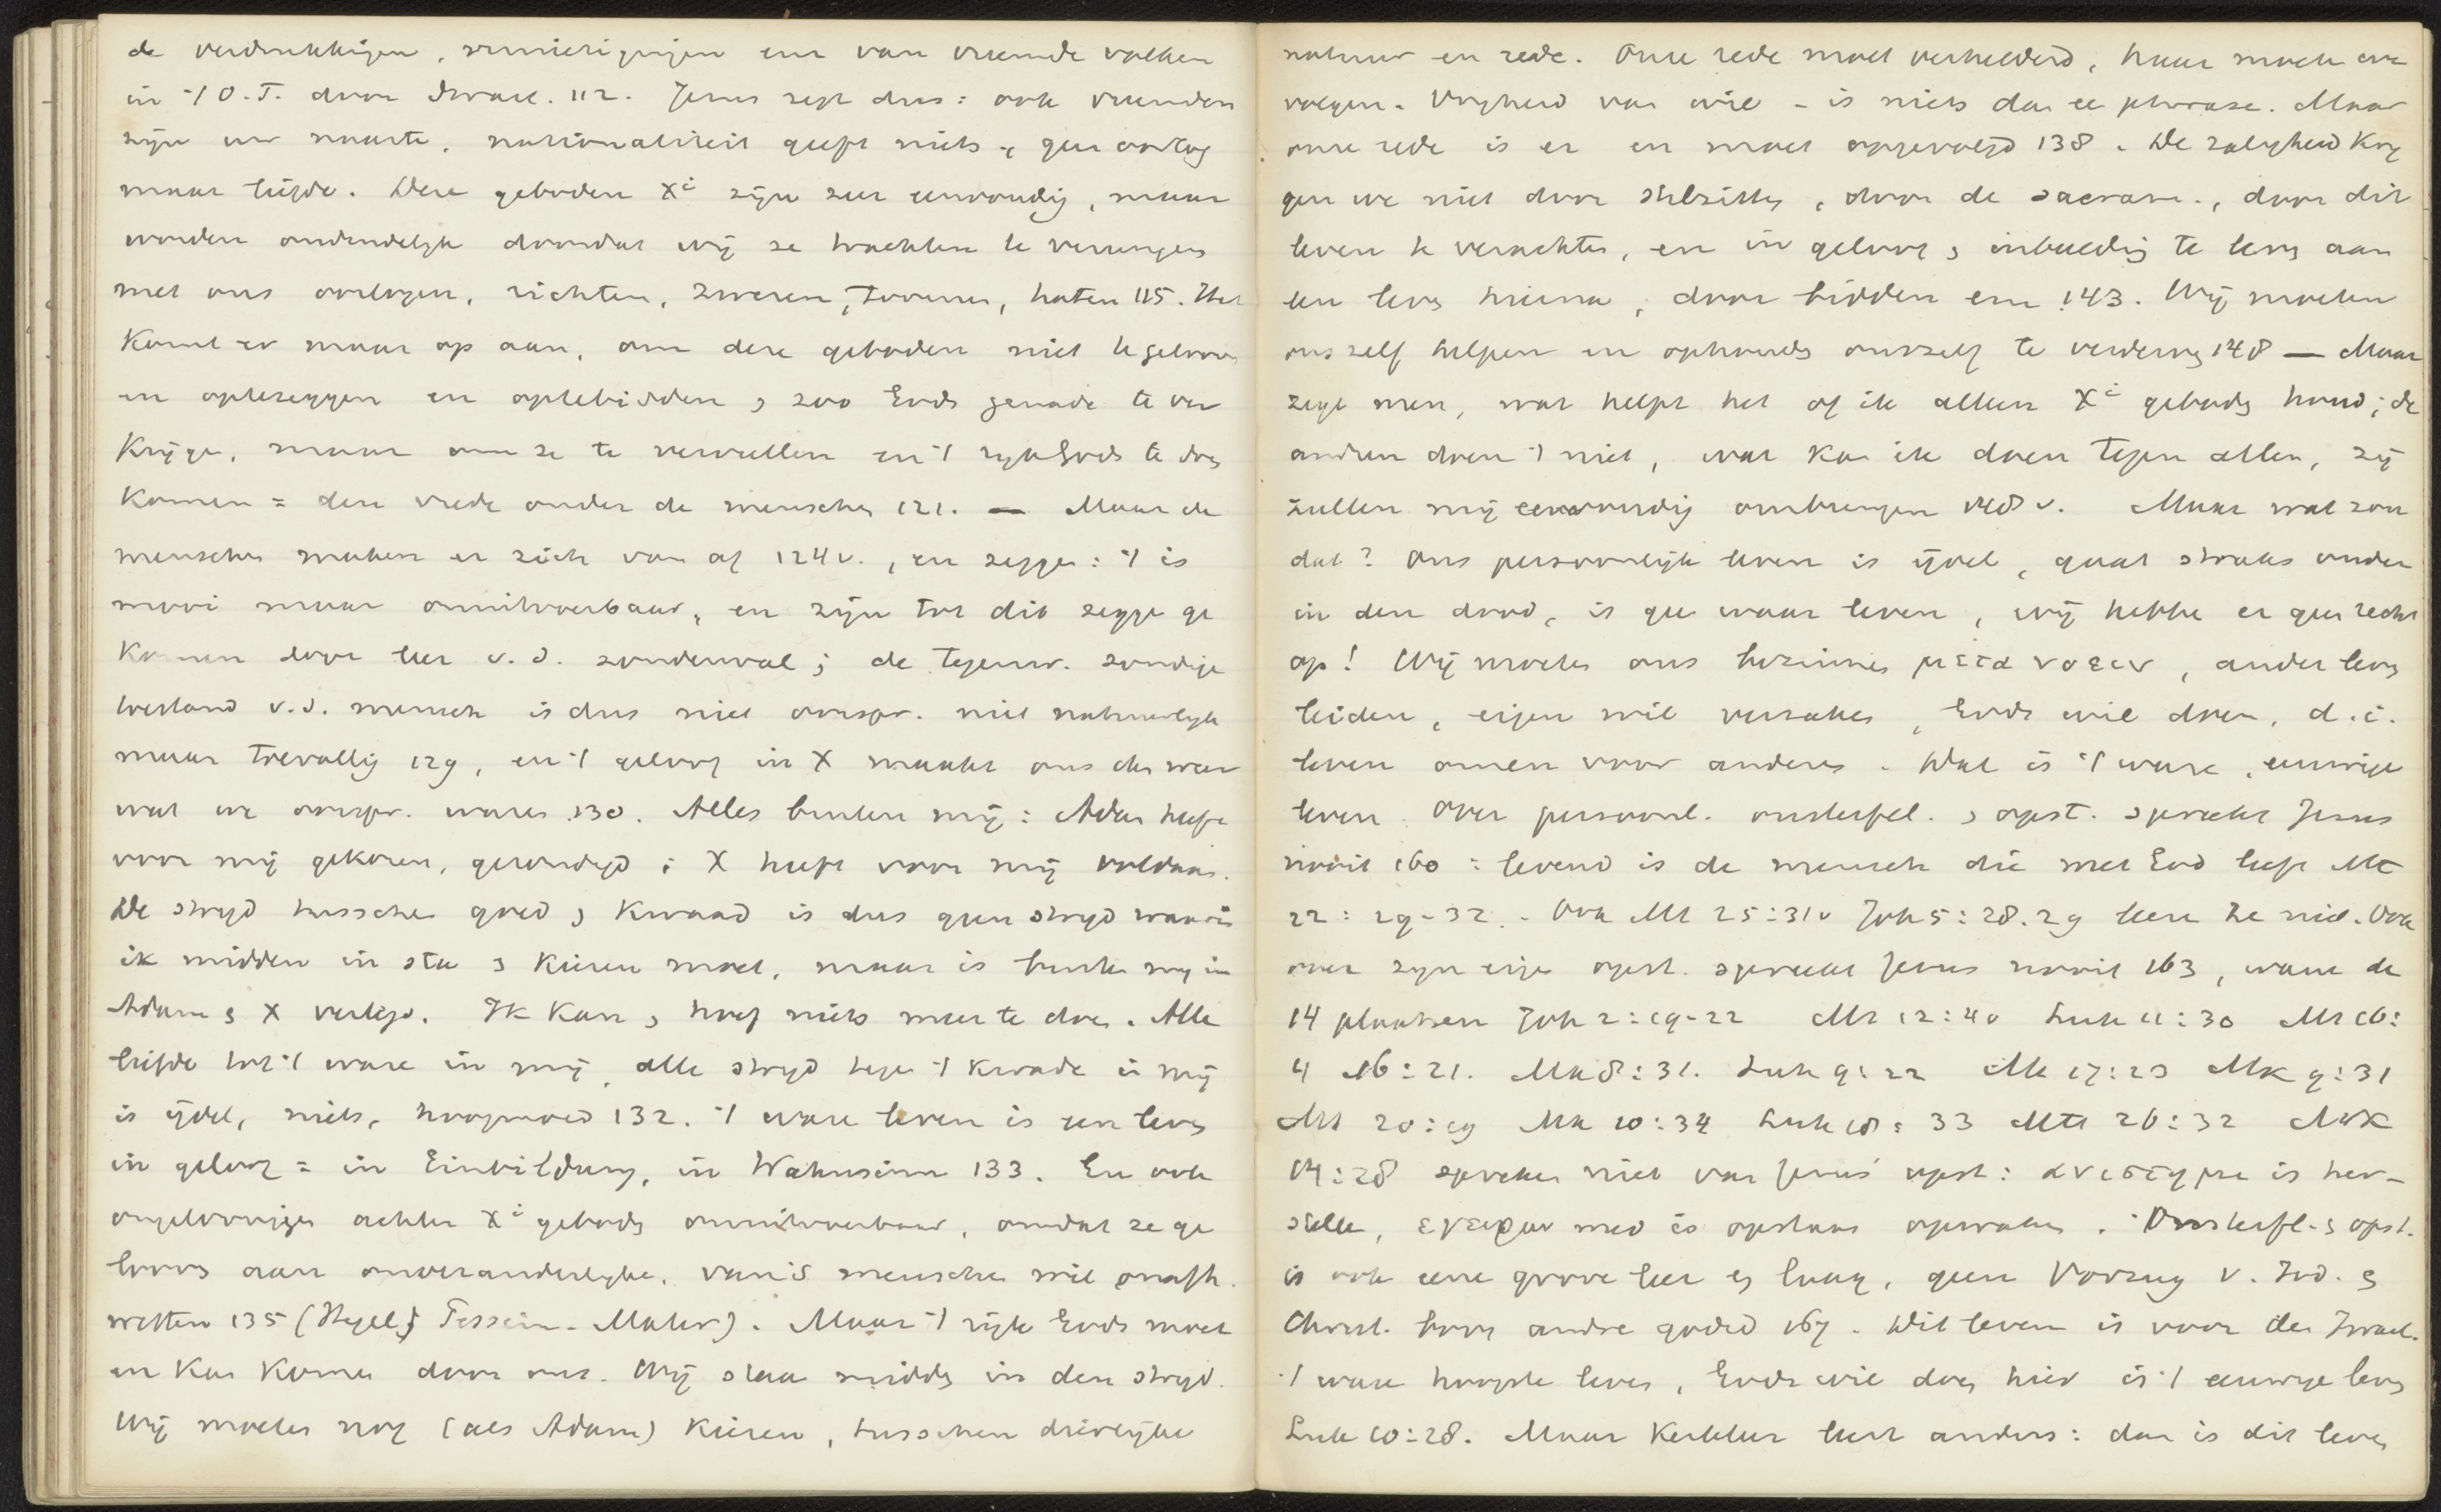 de verdrukkingen, vernietigingen enz van vreemde volken
in 't O.T. door Israel. 112. Jezus zegt dus: ook vreemden
zijn uw naaste, nationaliteit geeft niets, geen oorlog
maar liefde. Deze geboden Xi zijn zeer eenvoudig, maar
worden onduidelijk doordat wij ze trachten te verenigen
met ons oorlogen, richten, zweren, toornen, haten 115. Het
komt er maar op aan, om deze geboden niet te gelooven
en optezeggen en optebidden & zoo Gods genade te ver
krijgen, maar om ze te vervullen en 't rijk Gods te doen
komen = deze vrede onder de menschen 121. — Maar de
menschen maken er zich van af 124 v., en zeggen: 't is
mooi maar onuitvoerbaar, en zijn tot dit zeggen ge
komen door leer v. d. zondenval; de tegenw. zondige
toestand v.d. mensch is dus niet oorspr. niet natuurlijk
maar toevallig 129, en 't geloof in X maakt ons dus weer
wat we oorspr. waren 130. Alles buiten mij: Adam heeft
voor mij gekozen, gezondigd; X heeft voor mij voldaan.
De strijd tusschen goed & kwaad is dus geen strijd waarin
ik midden in sta & kiezen moet, maar is buiten mij in
Adam & X verlegd. Ik kan & hoef niets meer te doen. Alle
liefde tot 't ware in mij, alle strijd tegen 't kwade in mij
is ijdel, niets, hoogmoed 132. 't ware leven is een leven
in geloof = in Einbildung, in Wahnsinn 133. En ook
ongeloovigen achten Xi geboden onuitvoerbaar, omdat ze ge
looven aan onveranderlijke, van 's menschen wil onafh.
wetten 135 (Hegel, ). Maar 't rijk Gods moet
en kan komen door ons. Wij staan midden in den strijd.
Wij moeten nog (als Adam) kiezen, tusschen dierlijke
natuur en rede. Onze rede moet verhelderd, haar moeten we
volgen. Vrijheid van wil - is niets dan ee phrase. Maar
onze rede is er en moet opgevolgd 138. De zaligheid krij
gen we niet door stilzitten, door de sacram., door dit
leven te verachten, en in geloof & inbeelding te leven aan
een leven hierna, door bidden enz 143. Wij moeten
ons zelf helpen en ophouden onszelf te verderven 148 — Maar
zegt men, wat helpt het of ik alleen Xi geboden houd; de
andren doen 't niet, wat kan ik doen tegen allen, zij
zullen mij eenvoudig ombrengen 148 v. Maar wat zou
dat? Ons persoonlijk leven is ijdel, gaat straks onder
in den dood, is gee waar leven, wij hebben er geen recht
op! Wij moeten ons bezinnen μετανοειν, ander leven
leiden, eigen wil verzaken, Gods wil doen, d.i.
leven voor anderen. Dat is 't ware, eeuwige
leven. Over persoonl. onsterfel. & opst. spreekt Jezus
nooit 160: levend is de mensch die met God leeft Mt
22:29-32. Ook Mt 25:31v Joh 5:28.29 leren ze niet. Ook
over zijn eigen opst. spreekt Jezus nooit 163, want de
14 plaatsen Joh 2:19-22 Mt 12:40 Luk 11:30 Mt 16:
4 16:21. Mk 8:31. Luk 9:22 Mt 17:23 Mk 9:31
Mt 20:19 Mk 10:34 Luk 18:33 Mt 26:32 Mk
14:28 spreken niet van Jezus' opst: ανιστημι is her-
stellen, εγειρω med is opstaan opwaken. Onsterfl. & opst.
is ook eene grove leer en laag, geen voorzug v. Jod. &
Christ. boven andre godsd 167. Dit leven is voor den Israel.
't ware hoogste leven, Gods wil doen hier is 't eeuwige leven
Luk 10:28. Maar kerkleer leert anders: dan is dit leven